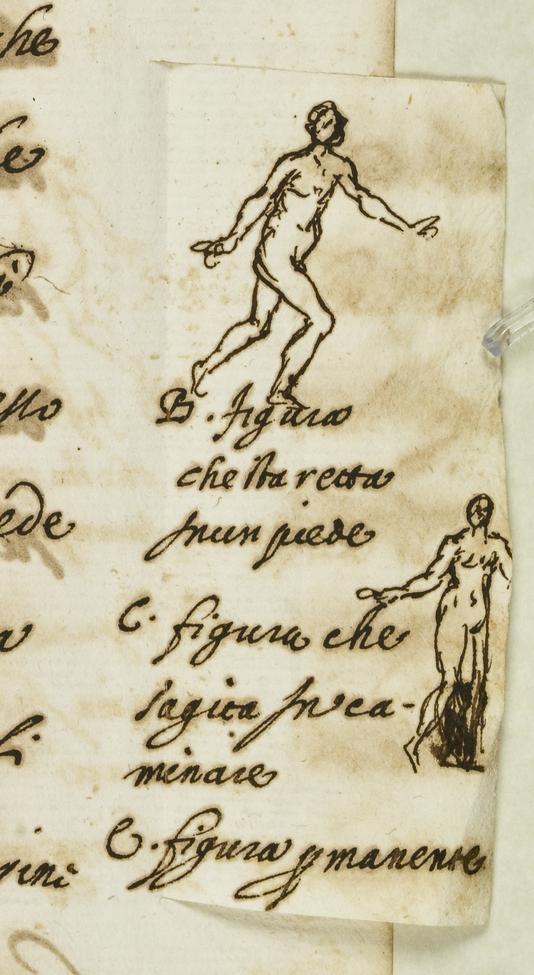 he
e
sto
ede
a
li
rini
B. figura
che sta retta
in un piede
C. figura che
sagita in ca-
minare
E. figura pmanente